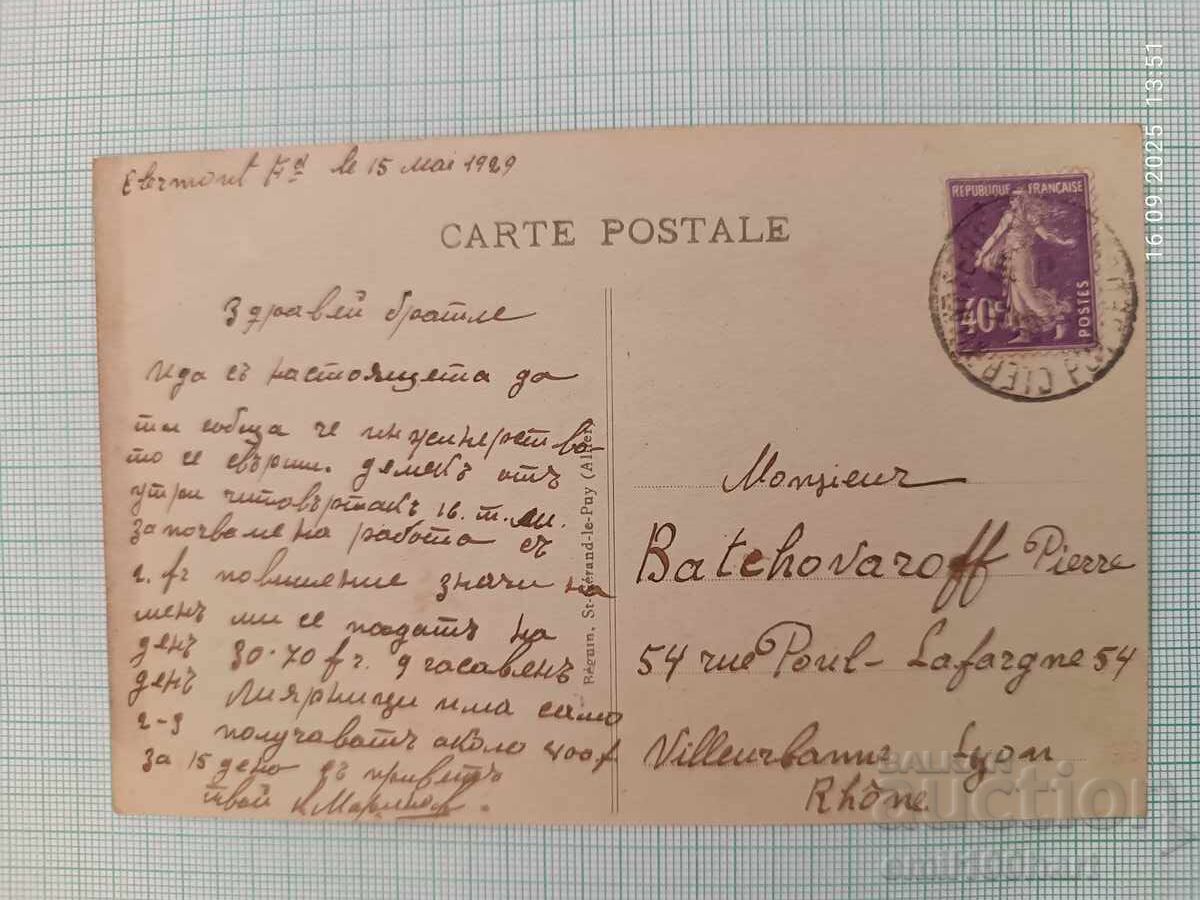 Clermont Fd le 15 Mai 1929
CARTE POSTALE
REPUBLIQUE FRANÇAISE
40c
POSTES
Здравей братле
Ида съ настоящета да
ти собща че инжинерство
то се свърши. демекъ отъ
утри читовъртакъ 16. т. м.
започваме на работа съ
2. fr повишение значи на
менъ ми се падатъ на
денъ 30.70 fr. 9 часавенъ
денъ Лиярници има само
2-3 получаватъ около 400 f
за 15 дено съ приветъ
твой
Béguin, St-Gérand-le-Puy (Allier)
Monsieur
Batchovaroff Pierre
54 rue Poul-Lafargne 54
Villeurbanne Lyon
Rhône
16.09.2025 13:51
BALKAN
auction